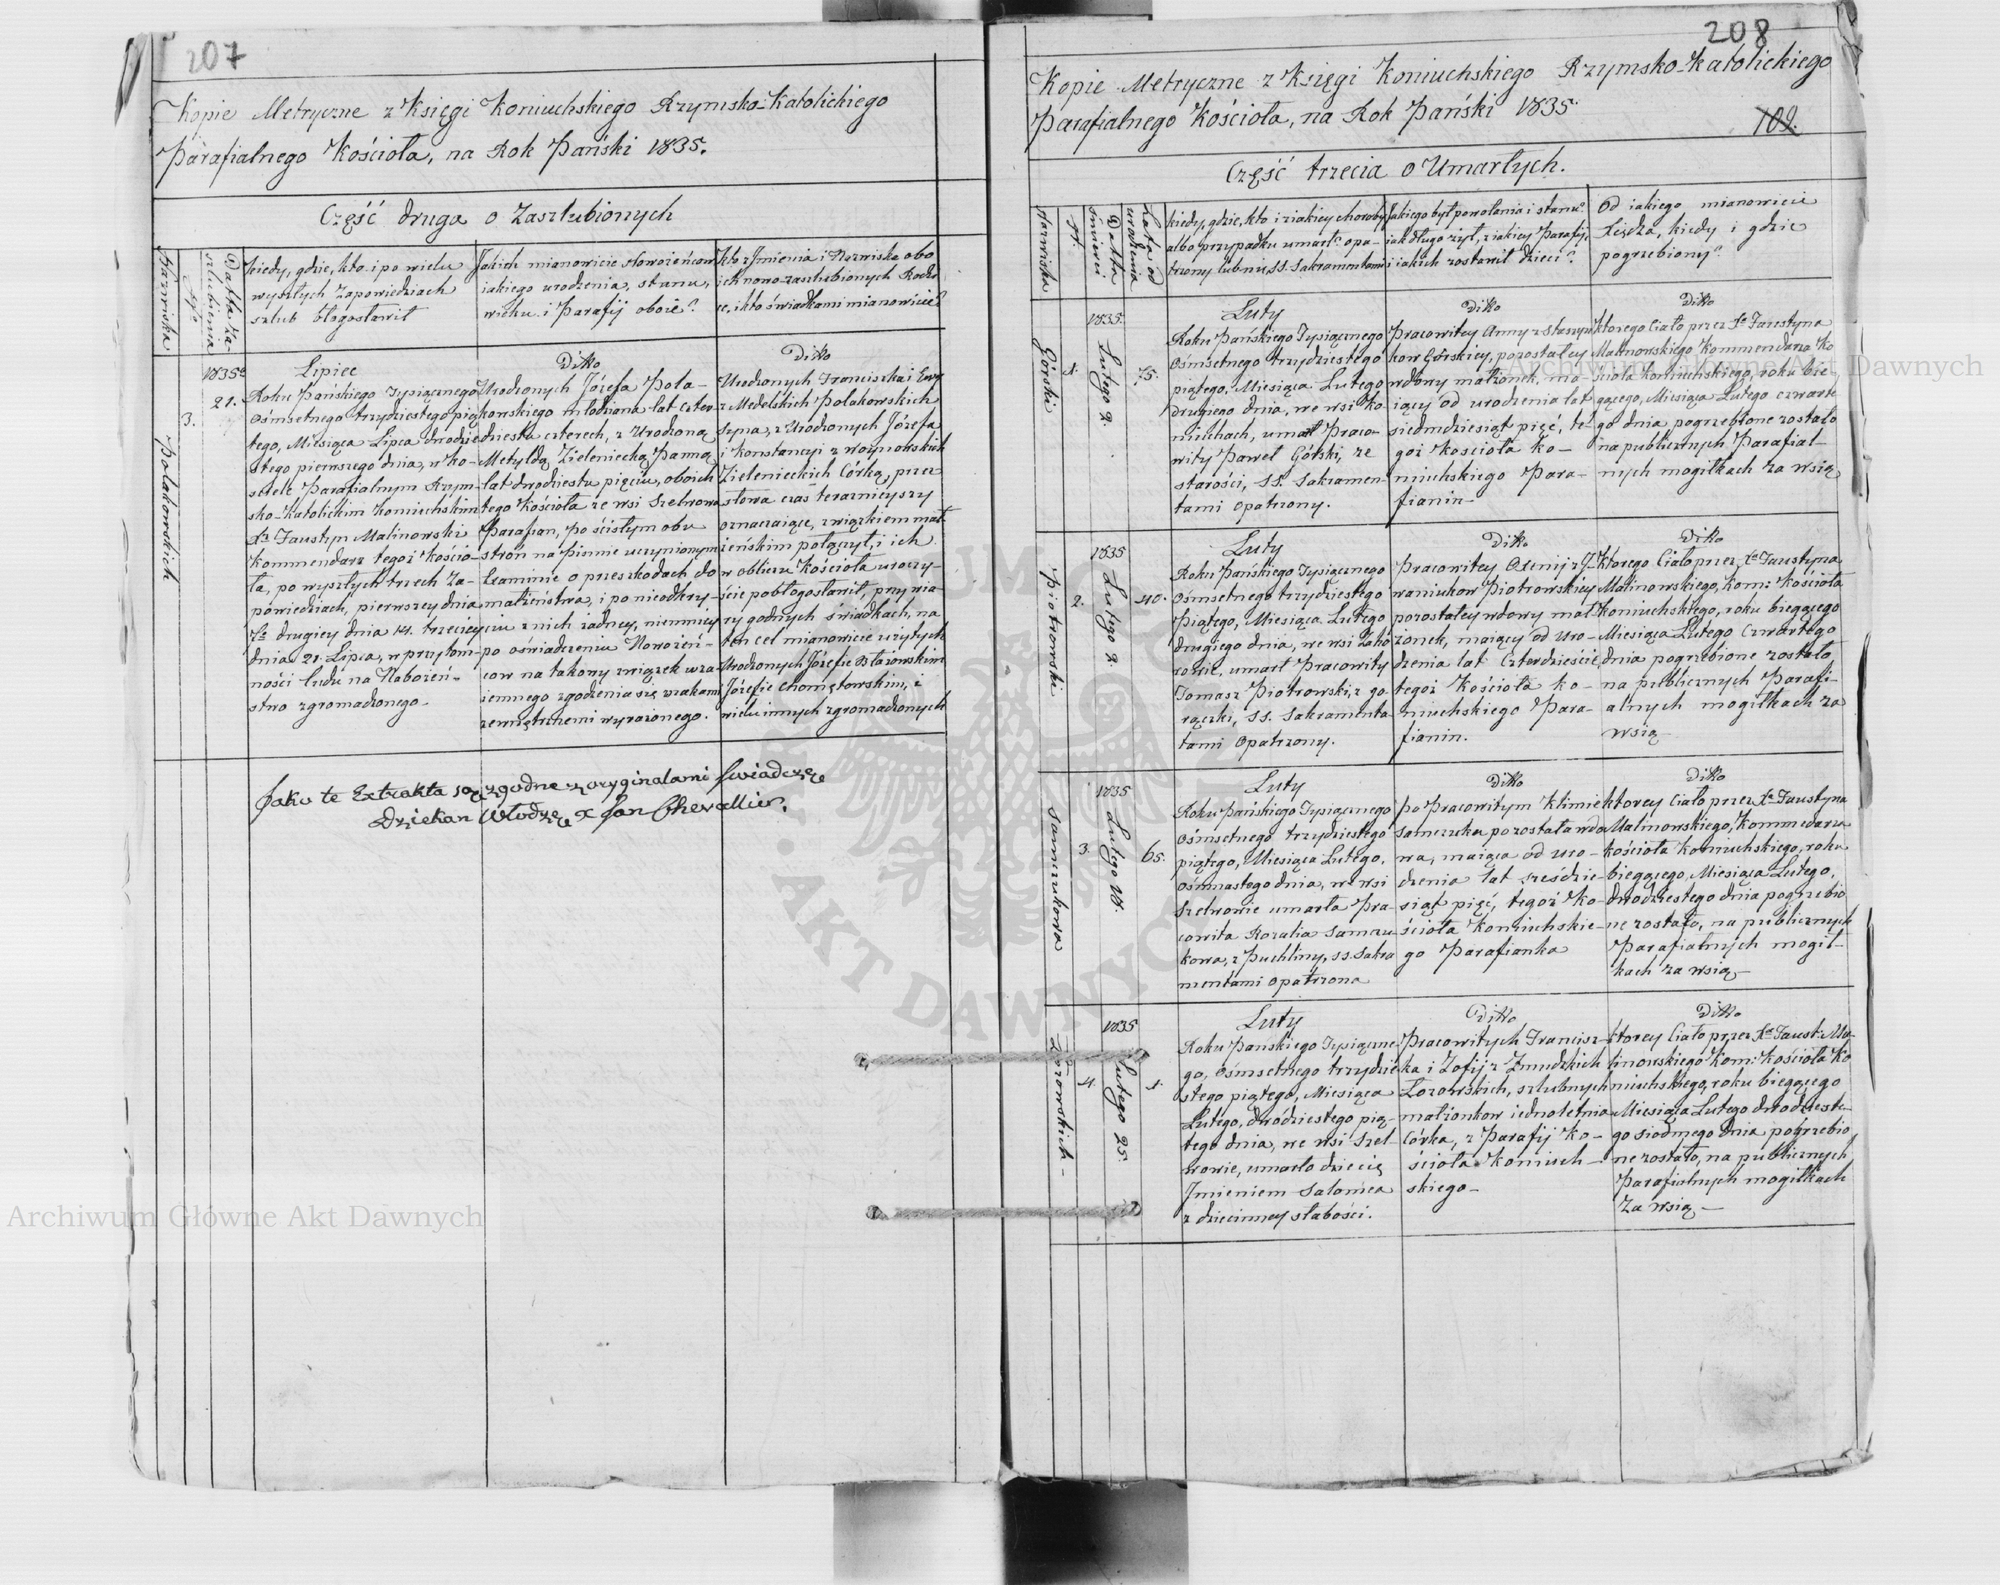 207
Kopie Metryczne z Księgi Koniuchskiego Rzymsko-Katolickiego
Parafialnego Kościoła, na Rok Pański 1835.
Część druga o Zaszlubionych
Nazwiska
Data Za-
szlubienia
Kiedy, gdzie, kto i po wielu
wyszłych Zapowiedziach
szlub błogosławił
Jakich mianowicie słowożeńcow
iakiego urodzenia, stanu,
wieku i Parafij oboie?
Kto z Imienia i Nazwiska obo
ich nowo-zaszlubionych Rodzi
ce, i kto świadkami mianowicie?
Polakowskich
3.
1835
21.
Lipiec
Roku Pańskiego Tysiącznego
Ośmsetnego trzydziestego pią
tego, Miesiąca Lipca dwódzie
stego pierwszego dnia, w Ko-
sciele Parafialnym Rzym-
sko-Katolickim Koniuchskim
Xz Faustyn Malinowski
Kommendarz tegoż Kościo-
ła, po wyszłych trzech Za-
powiedziach, pierwszey dnia
7. drugiey dnia 14. trzeciey
dnia 21. Lipca, w przytom-
ności ludu na Nabożeń-
stwo zgromadzonego.
Ditto
Urodzonych Józefa Pola-
kowskiego młodziana lat czter
dziestu czterech, z Urodzoną
Metyldą Zieleniecką Panną
lat dwodziestu pięciu, oboich
tego Kościoła ze wsi Szelwowa
Parafian, po ścisłym obu
stron na Piśmie uczynionym
Examinie o przeszkodach do
małżeństwa, i po nieodkry-
ciu z nich żadney, niemniey
po oświadczeniu Nowożeń-
cow na takowy związek wza
iemnego zgodzenia się znakami
zewnętrznemi wyrażonego.
Ditto
Urodzonych Franciszka i Ewy
z Medelskich Polakowskich
Syna, z Urodzonych Józefa
i Konstancyi z Woynowskich
Zielenieckich Córką, przez
słowa czas teraznieyszy
oznaczaiące, związkiem mał
żeńskim połączył, i ich
w obliczu Kościoła uroczy-
ście pobłogosławił, przy wia
rygodnych świadkach, na
ten cel mianowicie użytych
Urodzonych Józefie Błażowskim
Józefie Chomętowskim, i
wielu innych zgromadzonych
Jako te Extrakta są zgodne z oryginałami świadczę
Dziekan Włodz: X Jan Chevallier.
208
Kopie Metryczne z Księgi Koniuchskiego Rzymsko-Katolickiego
Parafialnego Kościoła, na Rok Pański 1835.
102.
Część trzecia o Umarłych.
Nazwiska
Data
śmierci
Lata od
urodzenia
Kiedy, gdzie, kto i z iakiey choroby
albo przypadku umarł? opa-
trzony lub nie SS. Sakramentami
Jakiego był powołania i stanu?
iak długo żył, z iakiey Parafij,
i iakich zostawił dzieci?
Od iakiego mianowicie
Xiędza, kiedy i gdzie
pogrzebiony?
Górski
1.
1835.
Lutego 2.
75.
Luty
Roku Pańskiego Tysiącznego
Ośmsetnego trzydziestego
piątego, Miesiąca Lutego
drugiego dnia, we wsi Ko-
niuchach, umarł Praco-
wity Paweł Górski, ze
starości, SS. Sakramen-
tami opatrzony.
Ditto
Pracowitey Anny z Staszyn
kow Górskiey, pozostałey
wdowy małżonek, ma-
iący od urodzenia lat
siedmdziesiąt pięć, te-
goż Kościoła Ko-
niuchskiego Para-
fianin
Ditto
Ktorego Ciało przez Xa Faustyna
Malinowskiego Kommendarza Ko
ścioła Koniuchskiego, roku bie-
żącego, Miesiąca Lutego czwarte
go dnia, pogrzebione zostało
na publicznych Parafial-
nych mogiłkach za wsią
Piotrowski
2.
1835
Lutego 2.
40.
Luty
Roku Pańskiego Tysiącznego
Ośmsetnego trzydziestego
Piątego, Miesiąca Lutego
drugiego dnia, we wsi Zaho
rowie, umarł Pracowity
Tomasz Piotrowski, z go
rączki, SS. Sakramenta
tami opatrzony.
Ditto
Pracowitey Oxenij z J-
waniukow Piotrowskiey
pozostałey wdowy mał
żonek, maiący od Uro-
dzenia lat Czterdzieście
tegoż Kościoła Ko-
niuchskiego Para-
fianin.
Ditto
Którego Ciało przez Xa Faustyna
Malinowskiego, Kom: Kościoła
Koniuchskiego, roku bieżącego
Miesiąca Lutego Czwartego
dnia pogrzebione zostało
na publicznych Parafi-
alnych mogiłkach za
wsią
Samczukowa
3.
1835
Lutego 18.
65.
Luty
Roku Pańskiego Tysiącznego
Ośmsetnego trzydziestego
piątego, Miesiąca Lutego,
Ośmnastego dnia, we wsi
Szelwowie umarła Pra
cowita Rozalia Samczu
kowa, z Puchliny, SS. Sakra
mentami opatrzona
Ditto
Po Pracowitym Klimie
Samczuku pozostała wdo
wa, maiąca od uro-
dzenia lat sześdzie-
siąt pięć, tegoż Ko-
ścioła Koniuchskie-
go Parafianka
Ditto
Ktorey Ciało przez Xa Faustyna
Malinowskiego, Kommedarza
Kościoła Koniuchskiego, roku
bieżącego, Miesiąca Lutego,
dwodziestego dnia pogrzebio
ne zostało, na publicznych
Parafialnych mogił-
kach za wsią
Łozowskich
4.
1835
Lutego 25.
1.
Luty
Roku Pańskiego Tysiączne-
go, Ośmsetnego trzydzie
stego piątego, Miesiąca
Lutego, dwódziestego pią-
tego dnia, we wsi Szel-
wowie, umarło dziecię
Imieniem Salomea
z dziecinney słabości.
Ditto
Pracowitych Francisz-
ka i Zofij z Żmudzkich
Łozowskich, szlubnych
małżonkow iednoletnia
Córka, z Parafij Ko-
ścioła Koniuch-
skiego
Ditto
Ktorey Ciało przez Xa Faust: Ma-
linowskiego Kom: Kościoła Ko
niuchskiego, roku bieżącego
Miesiąca Lutego dwodzieste-
go siodmego dnia pogrzebio
ne zostało, na publicznych
Parafialnych mogiłkach
Za wsią
Archiwum Główne Akt Dawnych
Archiwum Główne Akt Dawnych
AKT DAWNYCH